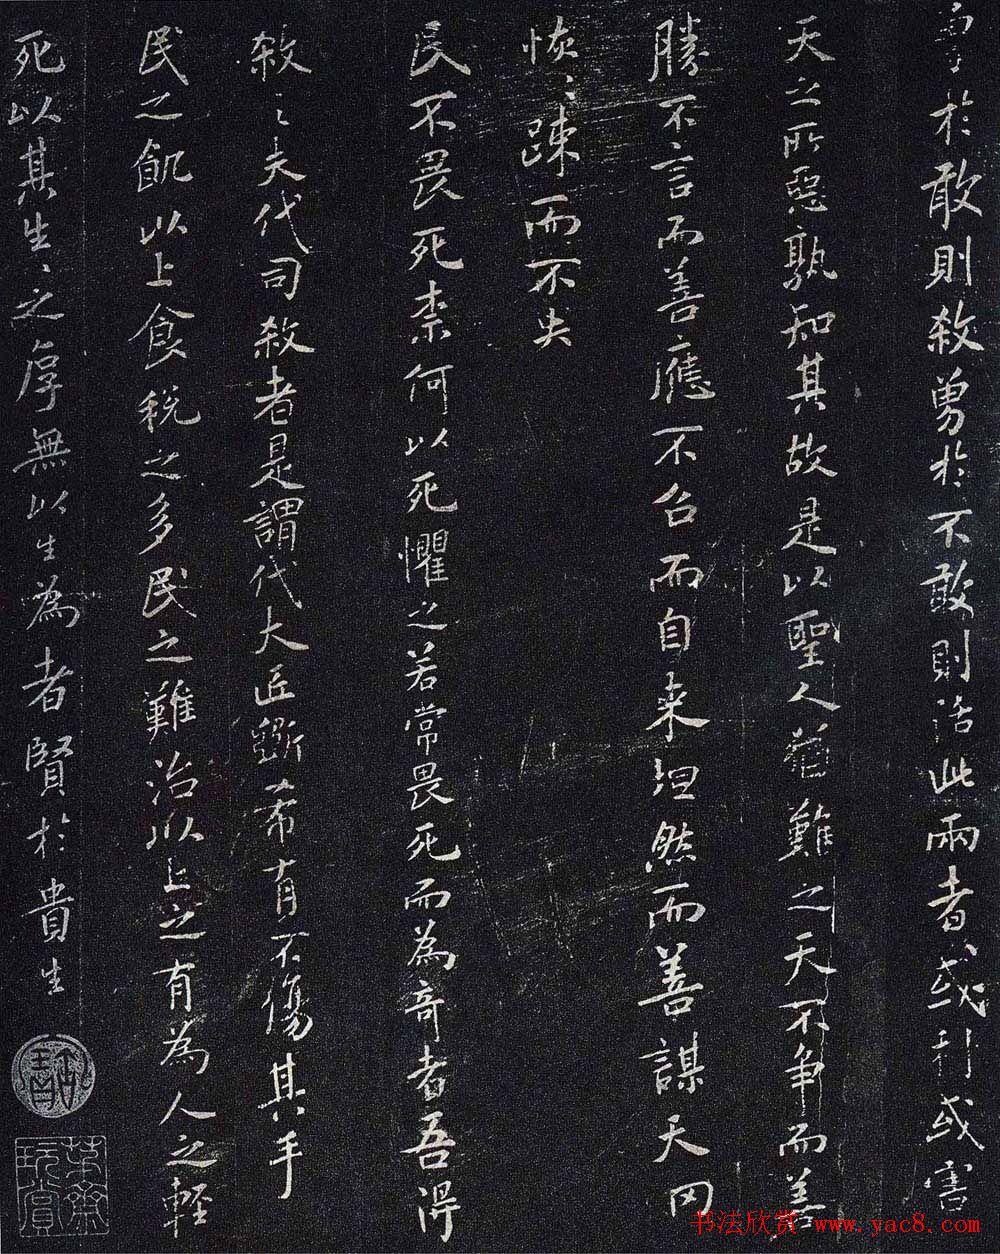 勇於敢則殺勇於不敢則活此兩者或利或害
天之所惡孰知其故是以聖人猶難之天不爭而善
勝不言而善應不召而自来坦然而善謀天罔
恢〻踈而不失
民不畏死柰何以死懼之若常畏死而為奇者吾得
殺〻夫代司殺者是謂代大匠斲希有不傷其手
民之飢以上食稅之多民之難治以上之有為人之輕
死以其生〻之厚無以生為者賢於貴生
書法欣赏 www.yac8.com